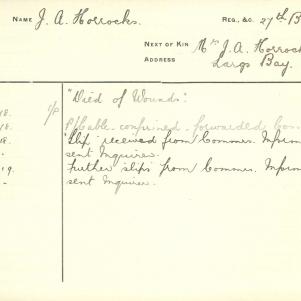 NAME J. A. Horrocks. REG., &C. 27th B
NEXT OF KIN Mrs J. A. Horrock
ADDRESS Largs Bay.
"Died of Wounds".
18. P/Cable confirmed forwarded
18. "Slip" received from Commrs. Inform
sent Inquirer.
19. Further "slips" from Commrs. Inform
sent Inquirer.